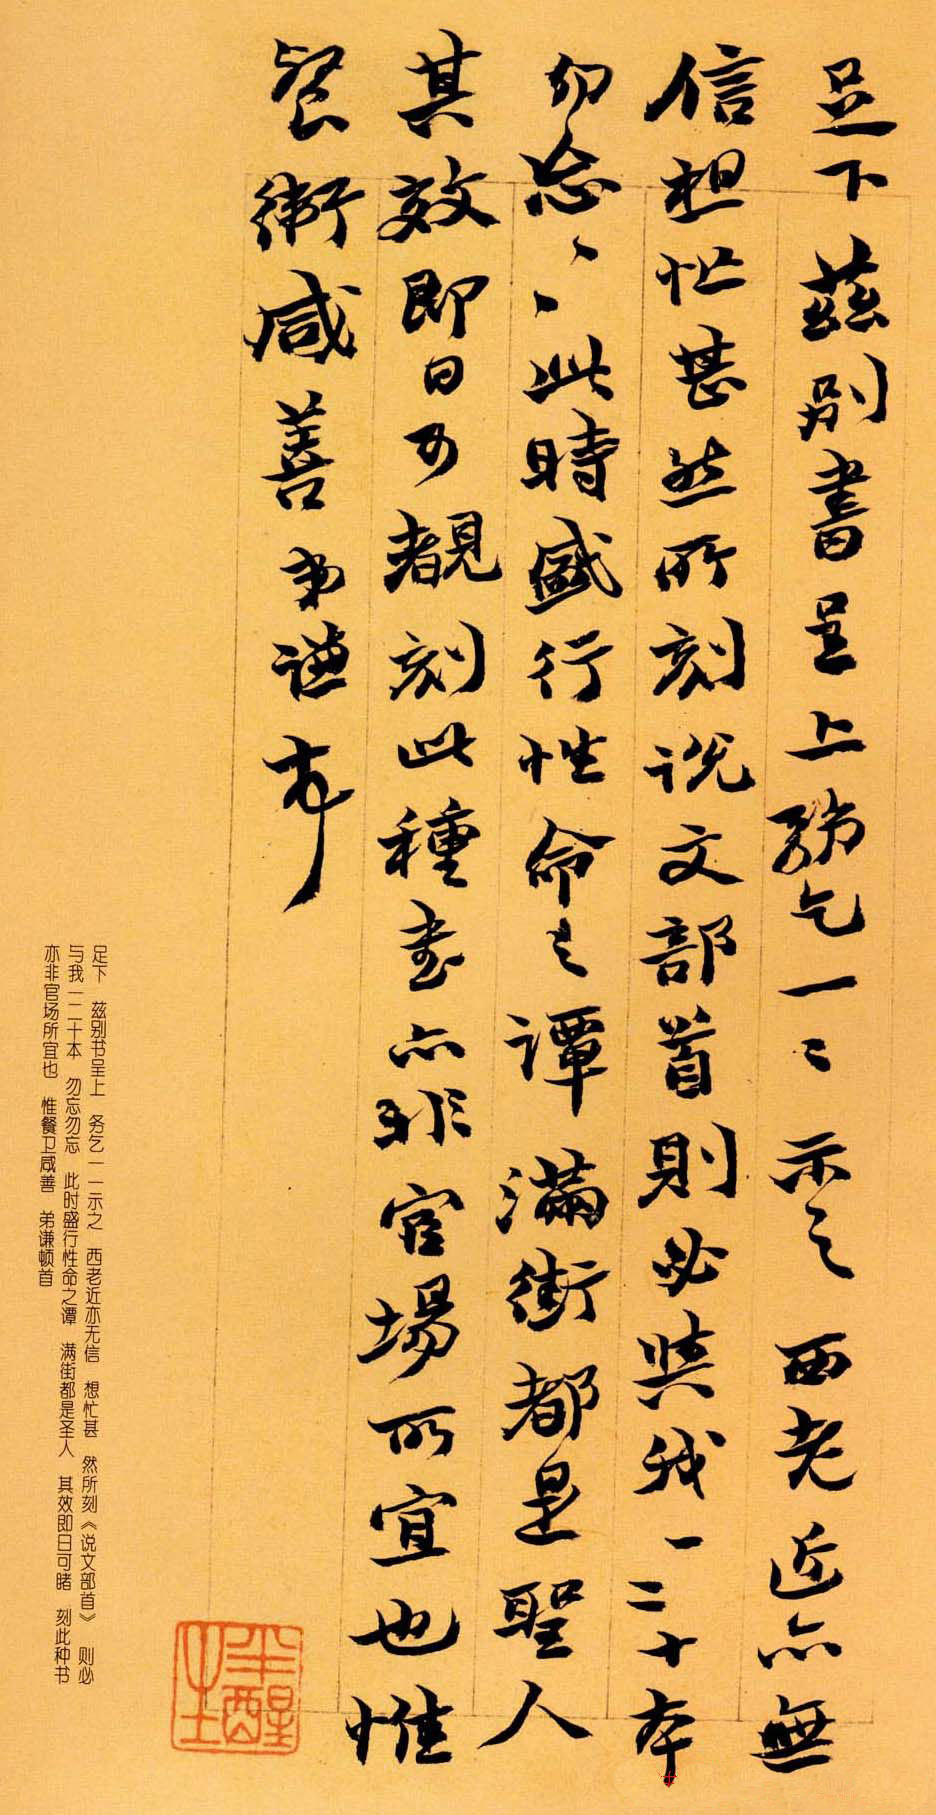 足下 茲別書呈上 務乞一〻示之 西老近亦無
信 想忙甚 然所刻說文部首 則必與我一二十本
勿忘〻〻 此時盛行性命之譚 滿街都是聖人
其效即日可覩 刻此種書亦非官場所宜也 惟
餐衛咸善 弟謙頓首
半醒
足下 兹别书呈上 务乞一一示之 西老近亦无信 想忙甚 然所刻《说文部首》 则必
与我一二十本 勿忘勿忘 此时盛行性命之谭 满街都是圣人 其效即日可睹 刻此种书
亦非官场所宜也 惟餐卫咸善 弟谦顿首